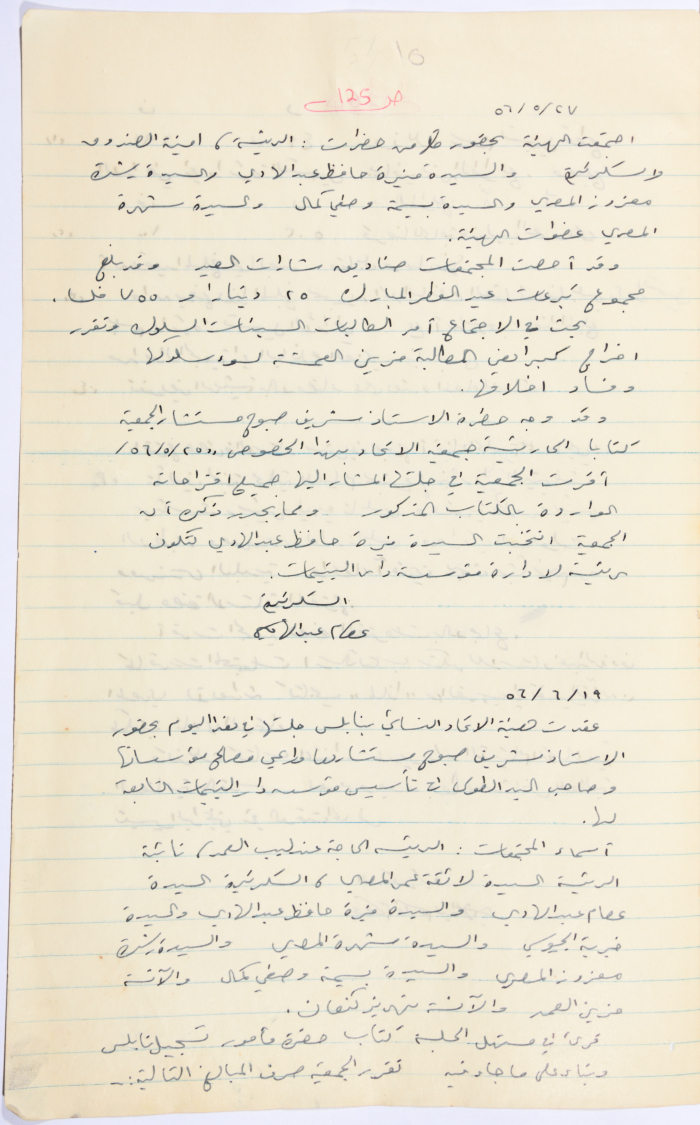 ١٥
ص 125
٥٦/٥/٢٧
اجتمعت الهيئة بحضور كل من حضرات : الرئيسة، امينة الصندوق
والسكرتيرة والسيدة منيرة حافظ عبد الهادي والسيدة يسرة
معزوز المصري والسيدة بسيمة وصفي كمال والسيدة شهرة
المصري عضوات الهيئة.
وقد أحصت المجتمعات صناديق شارات العيد وقد بلغ
مجموع تبرعات عيد الفطر المبارك ٢٥ دينارا و ٧٥٥ فلسا.
بحث في الاجتماع أمر الطالبات السيئات السلوك وتقرر
اخراج كبراهن المطالبة لسوء سلوكها
وفساد اخلاقها.
وقد وجه حضرة الاستاذ شريف صبوح مستشار الجمعية
كتابا الى رئيسة جمعية الاتحاد بهذا الخصوص ٥٦/٥/٢٥
أقرت الجمعية في جلستها المشار اليها جميع اقتراحاته
الواردة بالكتاب المذكور ومما يجدر ذكره أن
الجمعية انتخبت السيدة منيرة حافظ عبد الهادي لتكون
رئيسة لادارة مؤسسة دار اليتيمات.
السكرتيرة
عصام عبد الهادي
٥٦/٦/١٩
عقدت هيئة الاتحاد النسائي بنابلس جلستها في هذا اليوم بحضور
الاستاذ شريف صبوح مستشارها وراعي مصالح مؤسساتها
وصاحب اليد الطولى في تأسيس مؤسسة دار اليتيمات التابعة
لها.
أسماء المجتمعات : الرئيسه الحاجة عندليب العمد، نائبة
الرئيسة السيدة لائقة عمر المصري، السكرتيرة السيدة
عصام عبد الهادي والسيدة منيرة حافظ عبد الهادي والسيدة
خيرية الجيوسي والسيدة شهرة المصري والسيدة يسرة
معزوز المصري والسيدة بسيمة وصفي كمال والآنسة
مزين العمد والآنسة نهريز كنعان.
قرئ في مستهل الجلسة كتاب حضرة مأمور تسجيل نابلس
وبناء على ما جاء فيه تقرر الجمعية صرف المبالغ التالية :ـ